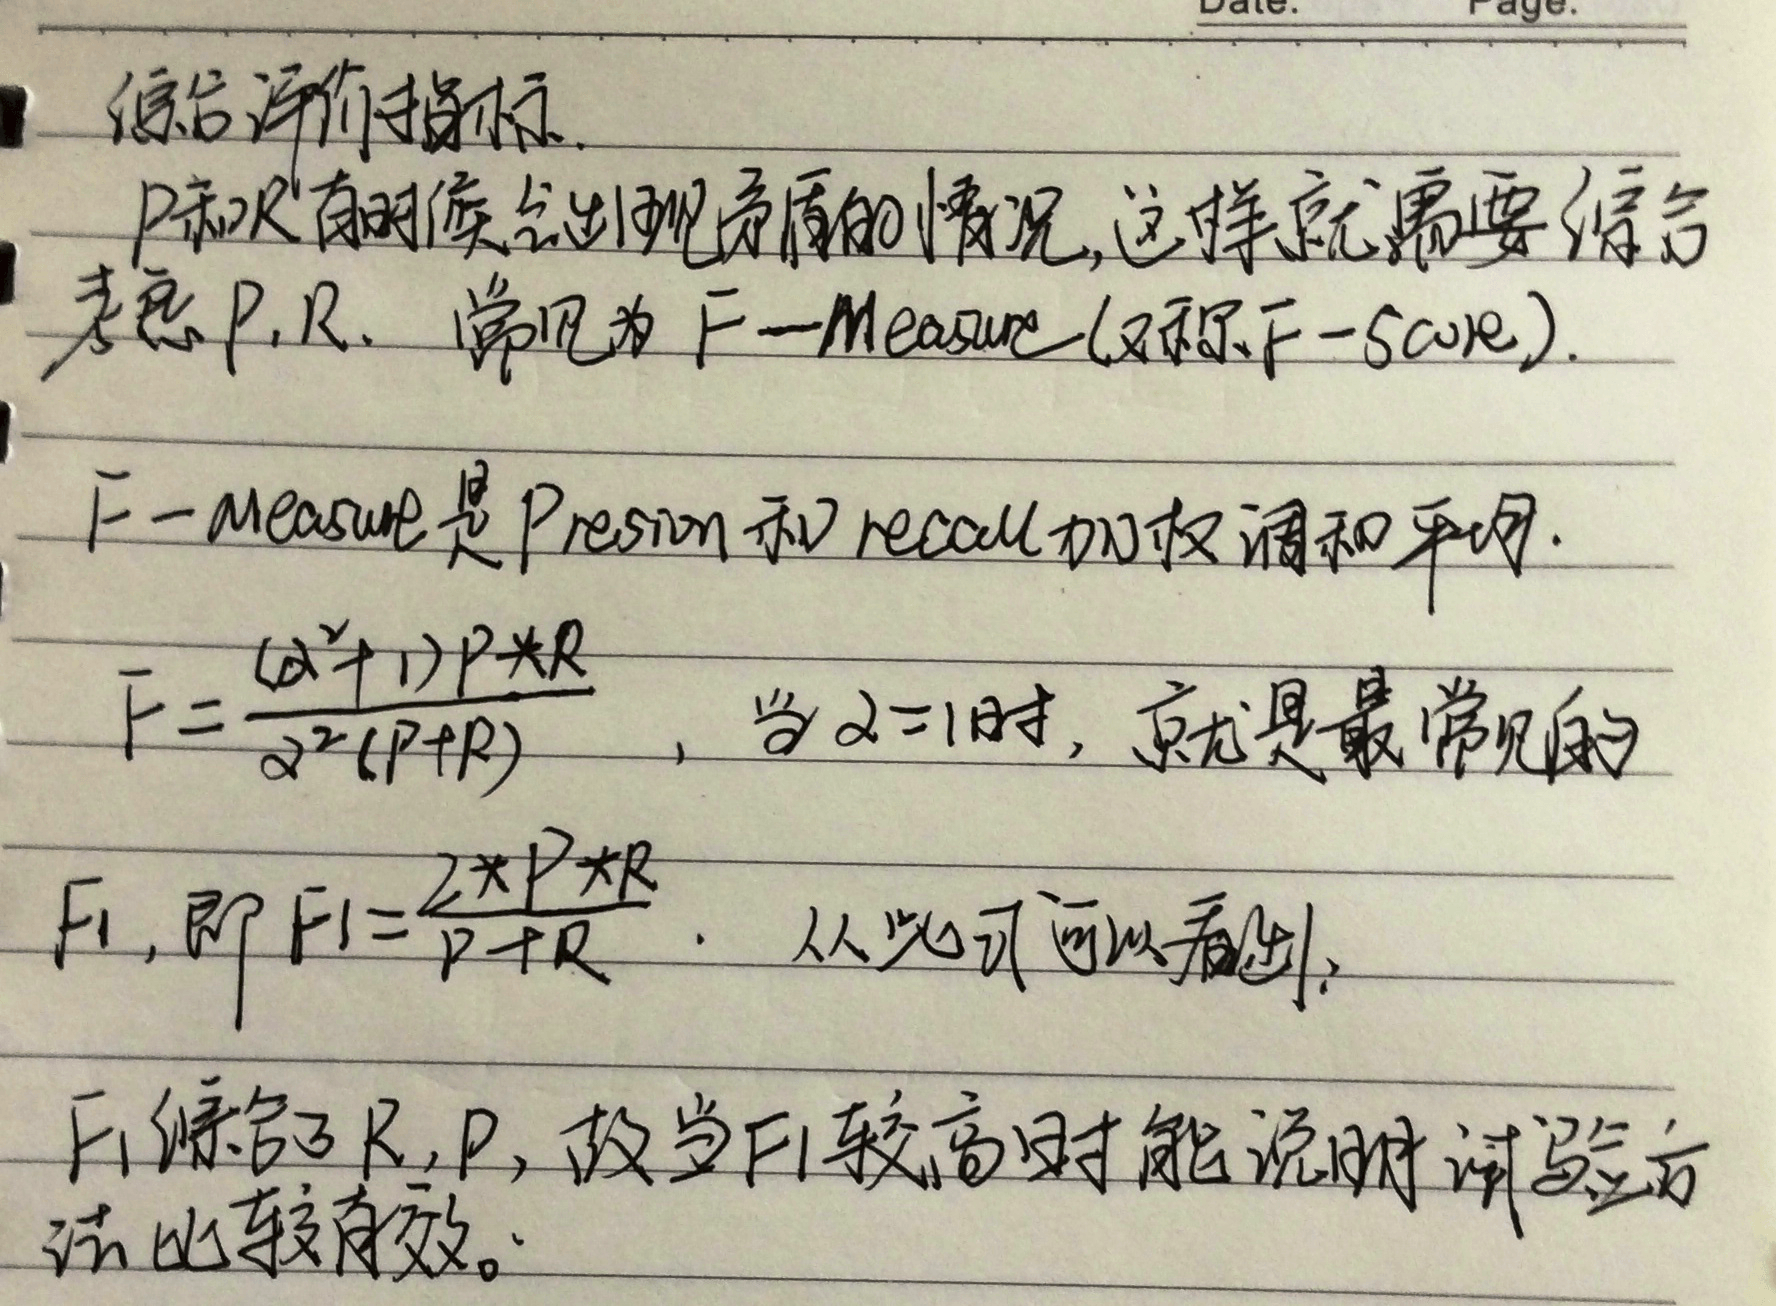 Date: Page:
综合评价指标.
P和R有时候会出现矛盾的情况,这样就需要综合
考虑P,R. 常见为 F-Measure(又称F-Score).
F-Measure是Presion和recall加权调和平均.
F=\frac{(α²+1)P*R}{α²(P+R)} , 当α=1时, 就是最常见的
F1,即F1=\frac{2*P*R}{P+R} . 从此式可以看出,
F1综合了R,P, 故当F1较高时能说明试验方
法比较有效。